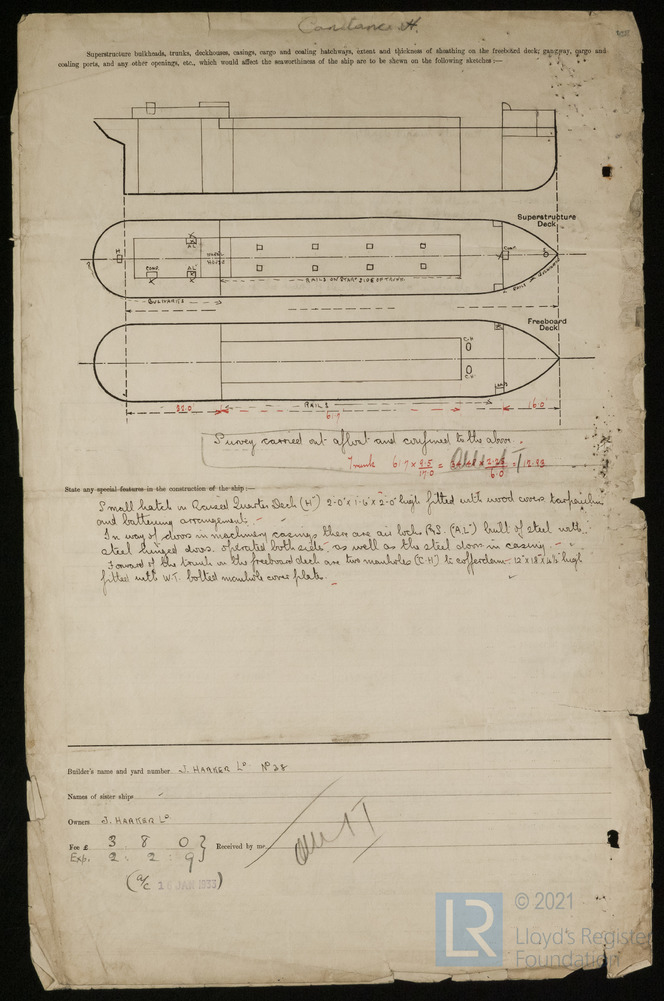 Constance H.
Superstructure bulkheads, trunks, deckhouses, casings, cargo and coaling hatchways, extent and thickness of sheathing on the freeboard deck; gangway, cargo and
coaling ports, and any other openings, etc., which would affect the seaworthiness of the ship are to be shewn on the following sketches :—
Superstructure
Deck.
H
COMP.
A.L
A.L
WHEEL
HOUSE
COMP.
RAILS ON STAR? SIDE OF TRUNK
BULWARKS
Freeboard
Deck
C.H
C.H
RAILS
32.0
61.7
16.0
Survey carried out afloat and confirmed to the above.
Trunk 61.7 x 9.5/17.0 = x 2.25/6.0 =
State any special features in the construction of the ship :—
Small hatch in Raised Quarter Deck (H) 2-0" x 1-6" x 2-0" high fitted with wood covers tarpaulin
and battening arrangement.
In way of doors in machinery casings there are air locks P.S. (A.L) built of steel with
steel hinged doors operated both sides as well as the steel doors in casing
Forward of the trunk on the freeboard deck are two manholes (C.H) to cofferdam 12" x 18" x 4½" high
fitted with W.T. bolted manhole cover plate.
Builder's name and yard number J. HARKER Lᴰ Nº 28
Names of sister ships
Owners J. HARKER Lᴰ
Fee £ 3 8 0 } Received by me,
Exp. 2 : 2 : 9
(a/c JAN 1933)
LR
© 2021
Lloyd's Register
Foundation